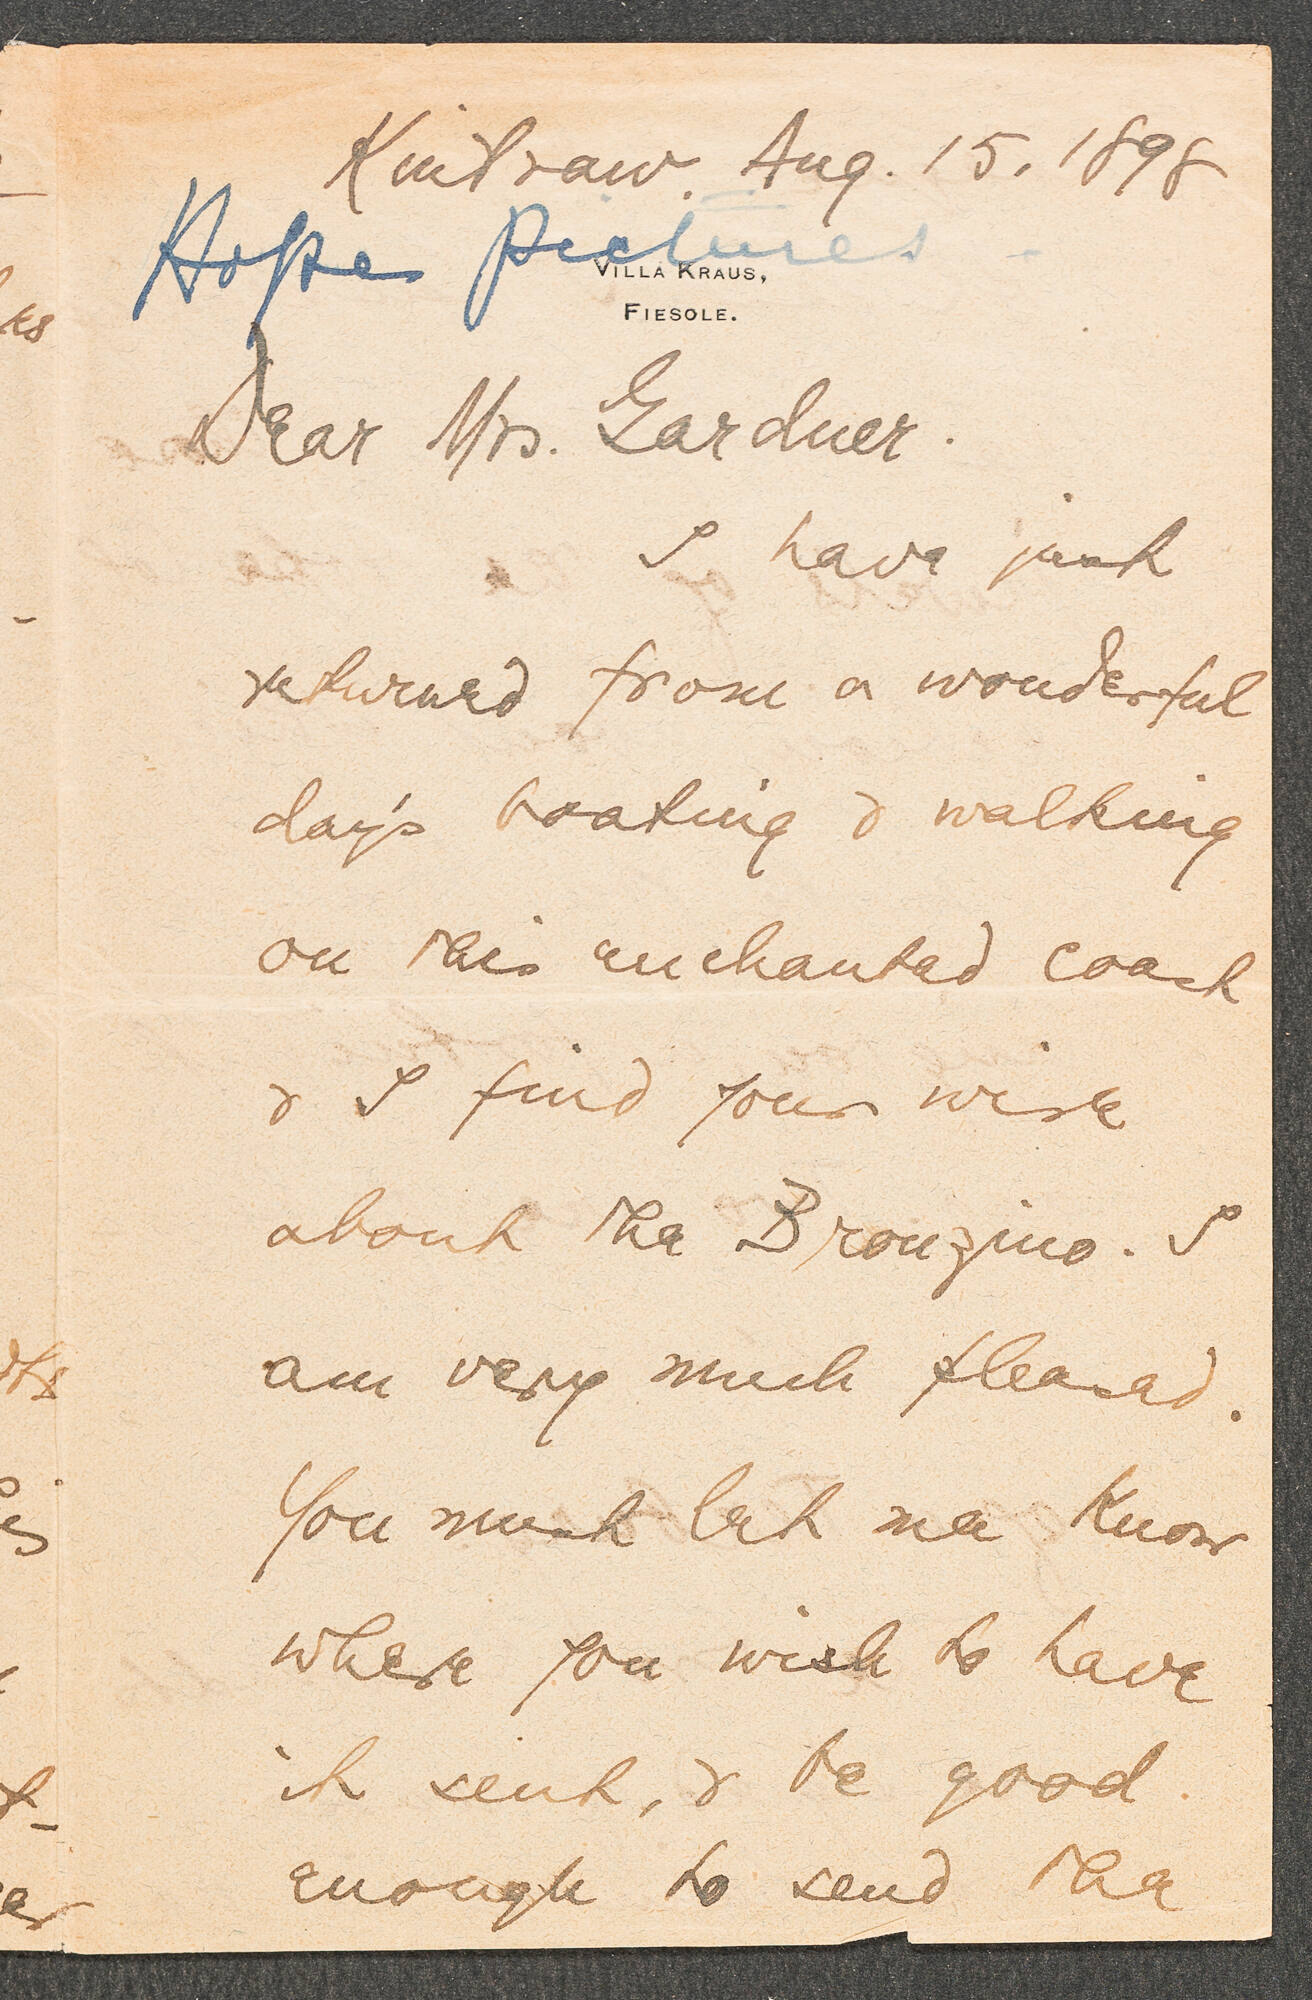 Kintraw. Aug. 15, 1898
Hope pictures -
VILLA KRAUS,
FIESOLE.
Dear Mrs. Gardner.
I have just
returned from a wonderful
day's boating & walking
on this enchanted coast
& I find your wire
about the Bronzino. I
am very much pleased.
You must let me know
where you wish to have
it sent, & be good
enough to send the